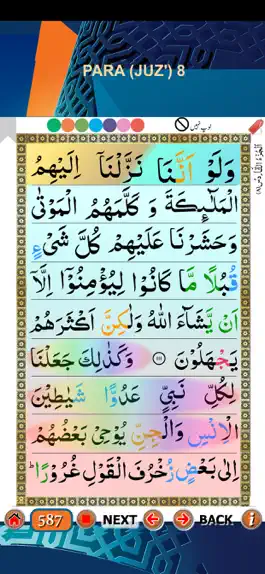 PARA (JUZ') 8
وَلَوۡ اَنَّنَا نَزَّلۡنَاۤ اِلَيۡهِمُ
الۡمَلٰٓٮِٕكَةَ وَ كَلَّمَهُمُ الۡمَوۡتٰى
وَحَشَرۡنَا عَلَيۡهِمۡ كُلَّ شَىۡءٍ
قُبُلًا مَّا كَانُوۡا لِيُؤۡمِنُوۡۤا اِلَّاۤ
اَنۡ يَّشَآءَ اللّٰهُ وَلٰـكِنَّ اَكۡثَرَهُمۡ
يَجۡهَلُوۡنَ ﴿۱۱۱﴾ وَكَذٰلِكَ جَعَلۡنَا
لِكُلِّ نَبِىٍّ عَدُوًّا شَيٰطِيۡنَ
الۡاِنۡسِ وَالۡجِنِّ يُوۡحِىۡ بَعۡضُهُمۡ
اِلٰى بَعۡضٍ زُخۡرُفَ الۡقَوۡلِ غُرُوۡرًا‌ ؕ
587 NEXT BACK i